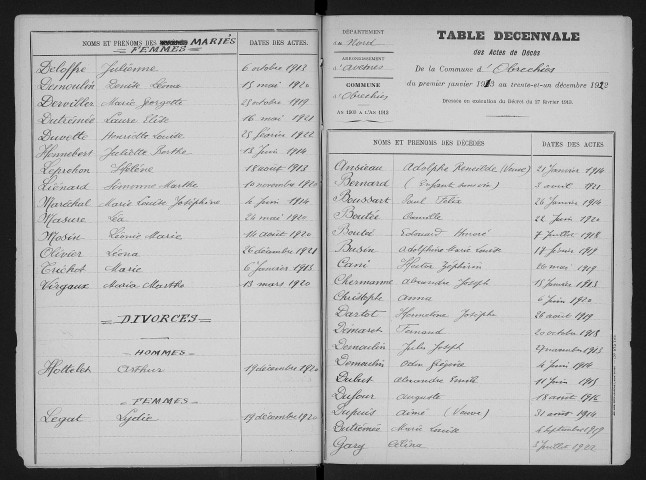 NOMS ET PRENOMS DES MARIÉS
FEMMES
DATES DES ACTES.
Deloffre Julienne 6 octobre 1913
Demoulin Louise Léona 15 mai 1920
Derviller Marie Georgette 25 octobre 1919
Dutrémée Laure Elise 16 mai 1921
Duvette Henriette Louise 25 février 1922
Hennebert Juliette Berthe 13 Juin 1914
Leprohon Hélène 18 août 1913
Liénard Marthe 10 novembre 1920
Maréchal Marie Louise Joséphine 4 juin 1914
Masure Léa 24 mai 1920
Mosin Léonie Marie 14 août 1920
Olivier Léona 26 décembre 1921
Trichot Marie 6 Janvier 1913
Virgaux Maria Marthe 13 mars 1920
DIVORCES
HOMMES
Hottelet Arthur 19 décembre 1920
FEMMES
Legat Lydie 19 décembre 1920
DÉPARTEMENT
du Nord
ARRONDISSEMENT
d'Avesnes
COMMUNE
d'Obrechies
AN 1903 A L'AN 1912
TABLE DECENNALE
des Actes de Décès
De la Commune d'Obrechies
du premier janvier 1913 au trente-et-un décembre 1922
Dressée en exécution du Décret du 17 février 1915.
NOMS ET PRENOMS DES DÉCÉDÉS
DATES DES ACTES
Ansieau Adolphe (Veuve) 21 janvier 1914
Bernard (Enfant) 3 avril 1921
Boussart Paul Félix 26 janvier 1914
Boutée 22 Juin 1920
Edouard Honoré 7 juillet 1918
Busin Adolphine Marie Louise 17 février 1919
Hector Zéphirin 26 mai 1919
Chermanne Alexandre Joseph 15 février 1913
Christophe Anna 6 juin 1920
Dartot Hermeline Josèphe 26 août 1919
Démaret Fernand 20 octobre 1918
Demoulin Jules Joseph 27 novembre 1913
Demoulin Odon 4 Juin 1914
Dubut Alexandre 11 Juin 1915
Dufour Auguste 18 août 1916
Dupuis Aimé (Veuve) 31 août 1914
Dutrémée Marie Louise 4 septembre 1919
Gary Célina 5 Juillet 1922